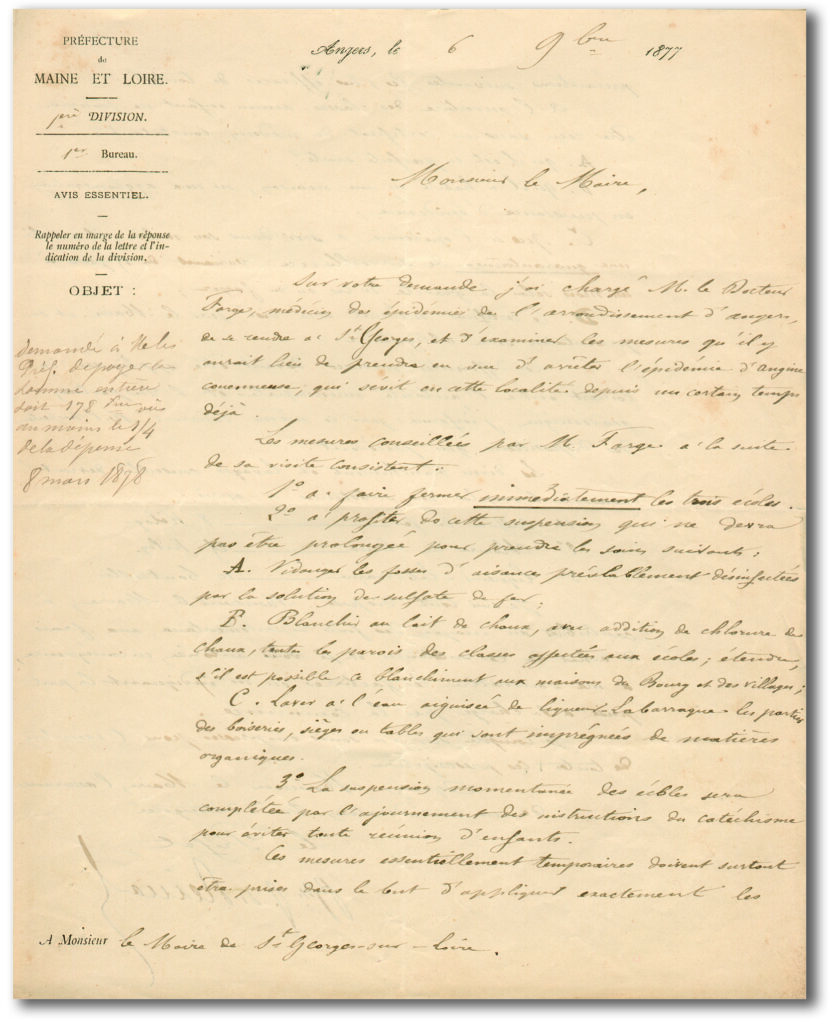 PRÉFECTURE
de
MAINE ET LOIRE.
1ère DIVISION.
1er Bureau.
AVIS ESSENTIEL.
Rappeler en marge de la réponse
le numéro de la lettre et l'in-
dication de la division.
OBJET :
demandé à Mr le
Préf. de payer la
somme entière
soit 178
au moins le 1/4
de la dépense
8 mars 1878
Angers, le 6 9bre 1877
Monsieur le Maire,
Sur votre demande j'ai chargé M. le Docteur
Farge, médecin des épidémies de l'arrondissement d'angers,
de se rendre à St Georges, et d'examiner les mesures qu'il y
aurait lieu de prendre en vue d'arrêter l'épidémie d'angine
couenneuse, qui sévit en cette localité depuis un certain temps
déjà.
Les mesures conseillées par M. Farge à la suite
de sa visite consistent :
1º à faire fermer immédiatement les trois écoles.
2º à profiter de cette suspension qui ne devra
pas être prolongée pour prendre les soins suivants :
A. Vidanger les fosses d'aisances préalablement désinfectées
par la solution de sulfate de fer ;
B. Blanchir au lait de chaux, avec addition de chlorure de
chaux, toutes les parois des classes affectées aux écoles ; étendre,
s'il est possible ce blanchiment aux maisons du Bourg et des villages ;
C. Laver à l'eau aiguisée de liqueur Labarraque les parties
des boiseries, sièges ou tables qui sont imprégnées de matières
organiques.
3º La suspension momentanée des écoles sera
complétée par l'ajournement des instructions du catéchisme
pour éviter toute réunion d'enfants.
Ces mesures essentiellement temporaires doivent surtout
être prises dans le but d'appliquer exactement les
A Monsieur le Maire de St Georges-sur-Loire.